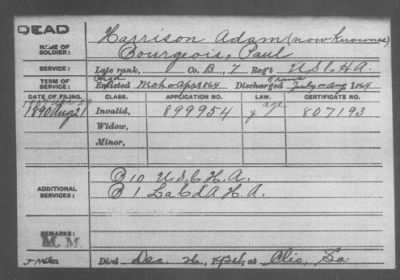 DEAD
Harrison Adam (now known as)
NAME OF SOLDIER: Bourgeois, Paul
SERVICE: Late rank, Co. B, 7 Reg't U.S.C.H.A.
TERM OF SERVICE: Enlisted 1864 Discharged 1864
DATE OF FILING. CLASS. APPLICATION NO. LAW. CERTIFICATE NO.
1890 Aug 21 Invalid, 899954 g age 807193
Widow,
Minor,
ADDITIONAL SERVICES: B 10 U.S.C.H.A.
B 1 La C d A H.A.
REMARKS:
M. M.
Died Dec. 26, at Clio, La